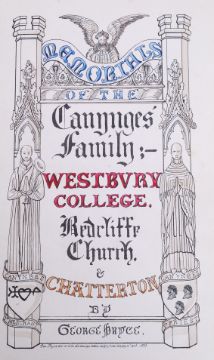 MEMORIALS
OF THE
Canynges'
Family;-
WESTBURY
COLLEGE.
Redcliffe
Church.
&
CHATTERTON
BY
GEORGE PRYCE.